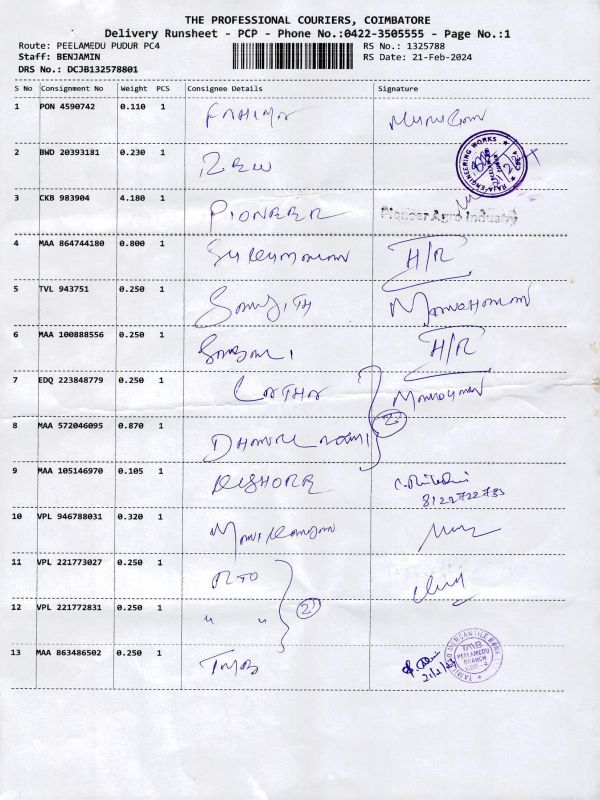 THE PROFESSIONAL COURIERS, COIMBATORE
Delivery Runsheet - PCP - Phone No.:0422-3505555 - Page No.:1
Route: PEELAMEDU PUDUR PC4 RS No.: 1325788
Staff: BENJAMIN RS Date: 21-Feb-2024
DRS No.: DCJB132578801
S No Consignment No Weight PCS Consignee Details Signature
1 PON 4590742 0.110 1 FAHIMA Murugan
2 BWD 20393181 0.230 1
RAJA ENGINEERING WORKS
3 CKB 983904 4.180 1 PIONEER Pioneer Agro Industry
4 MAA 864744180 0.800 1 H/R
5 TVL 943751 0.250 1 Manoharan
6 MAA 100888556 0.250 1 H/R
7 EDQ 223848779 0.250 1 LATHA
8 MAA 572046095 0.870 1 2
9 MAA 105146970 0.105 1 KISHORE
8122722783
10 VPL 946788031 0.320 1 Manikandan
11 VPL 221773027 0.250 1 RTO
12 VPL 221772831 0.250 1 " " 2
13 MAA 863486502 0.250 1 TMB
21/2/24
TMB
PEELAMEDU
BRANCH
CBE-4